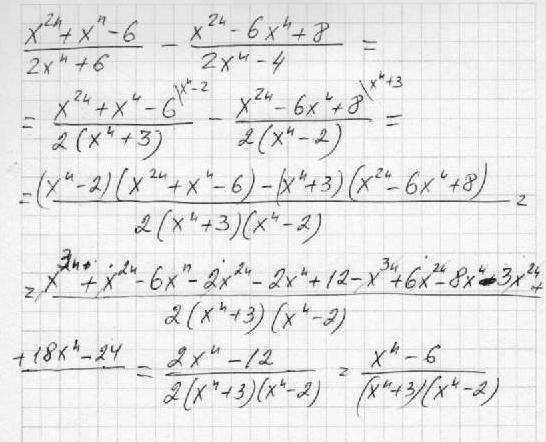 (x²ⁿ + xⁿ - 6)/(2xⁿ + 6) - (x²ⁿ - 6xⁿ + 8)/(2xⁿ - 4) =
= (x²ⁿ + xⁿ - 6)/(2(xⁿ + 3)) \xⁿ-2 - (x²ⁿ - 6xⁿ + 8)/(2(xⁿ - 2)) \xⁿ+3 =
= ((xⁿ - 2)(x²ⁿ + xⁿ - 6) - (xⁿ + 3)(x²ⁿ - 6xⁿ + 8))/(2(xⁿ + 3)(xⁿ - 2)) =
= (x³ⁿ + x²ⁿ - 6xⁿ - 2x²ⁿ - 2xⁿ + 12 - x³ⁿ + 6x²ⁿ - 8xⁿ - 3x²ⁿ +)/(2(xⁿ + 3)(xⁿ - 2))
+ 18xⁿ - 24 = (2xⁿ - 12)/(2(xⁿ + 3)(xⁿ - 2)) = (xⁿ - 6)/((xⁿ + 3)(xⁿ - 2))